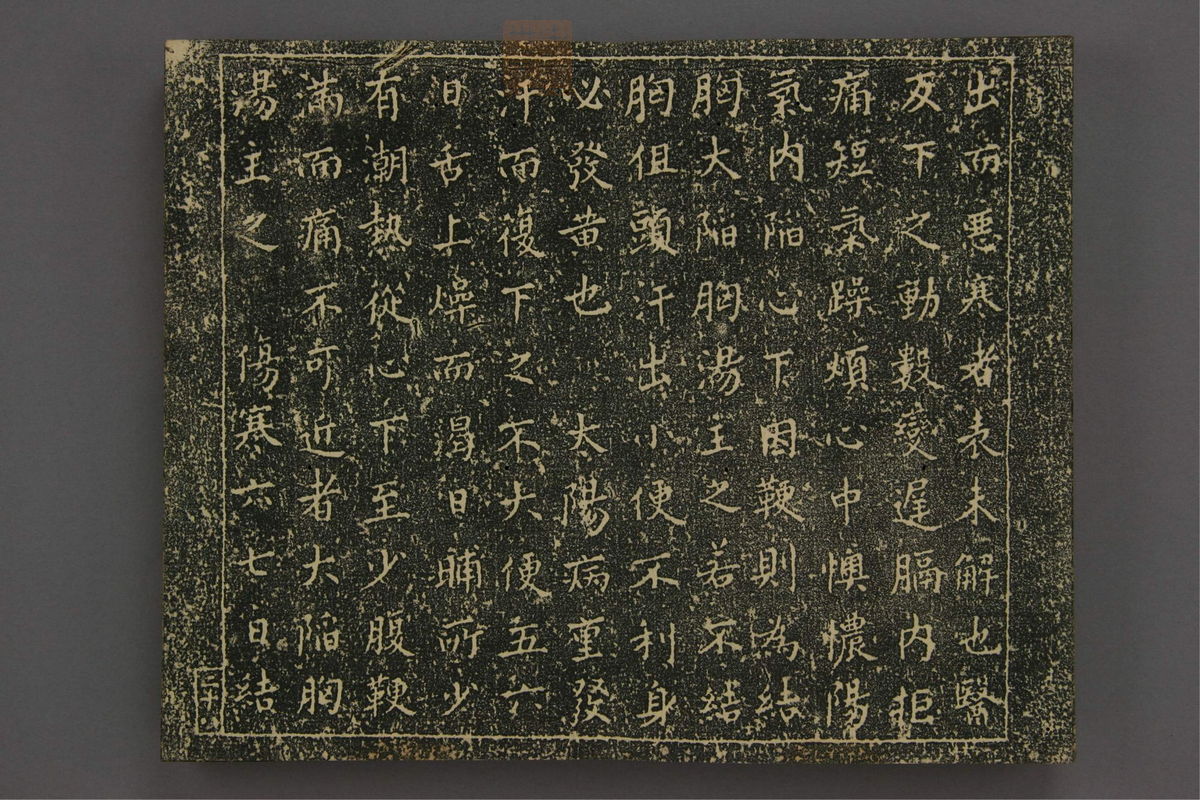 出而悪寒者表未解也醫
反下之動數變遅膈内拒
痛短氣躁煩心中懊憹陽
氣内陷心下因鞕則為結
胸大陷胸湯主之若不結
胸但頭汗出小便不利身
必發黄也　太陽病重發
汗而復下之不大便五六
日舌上燥而渴日晡所少
有潮熱從心下至少腹鞕
滿而痛不可近者大陷胸
湯主之　傷寒六七日結